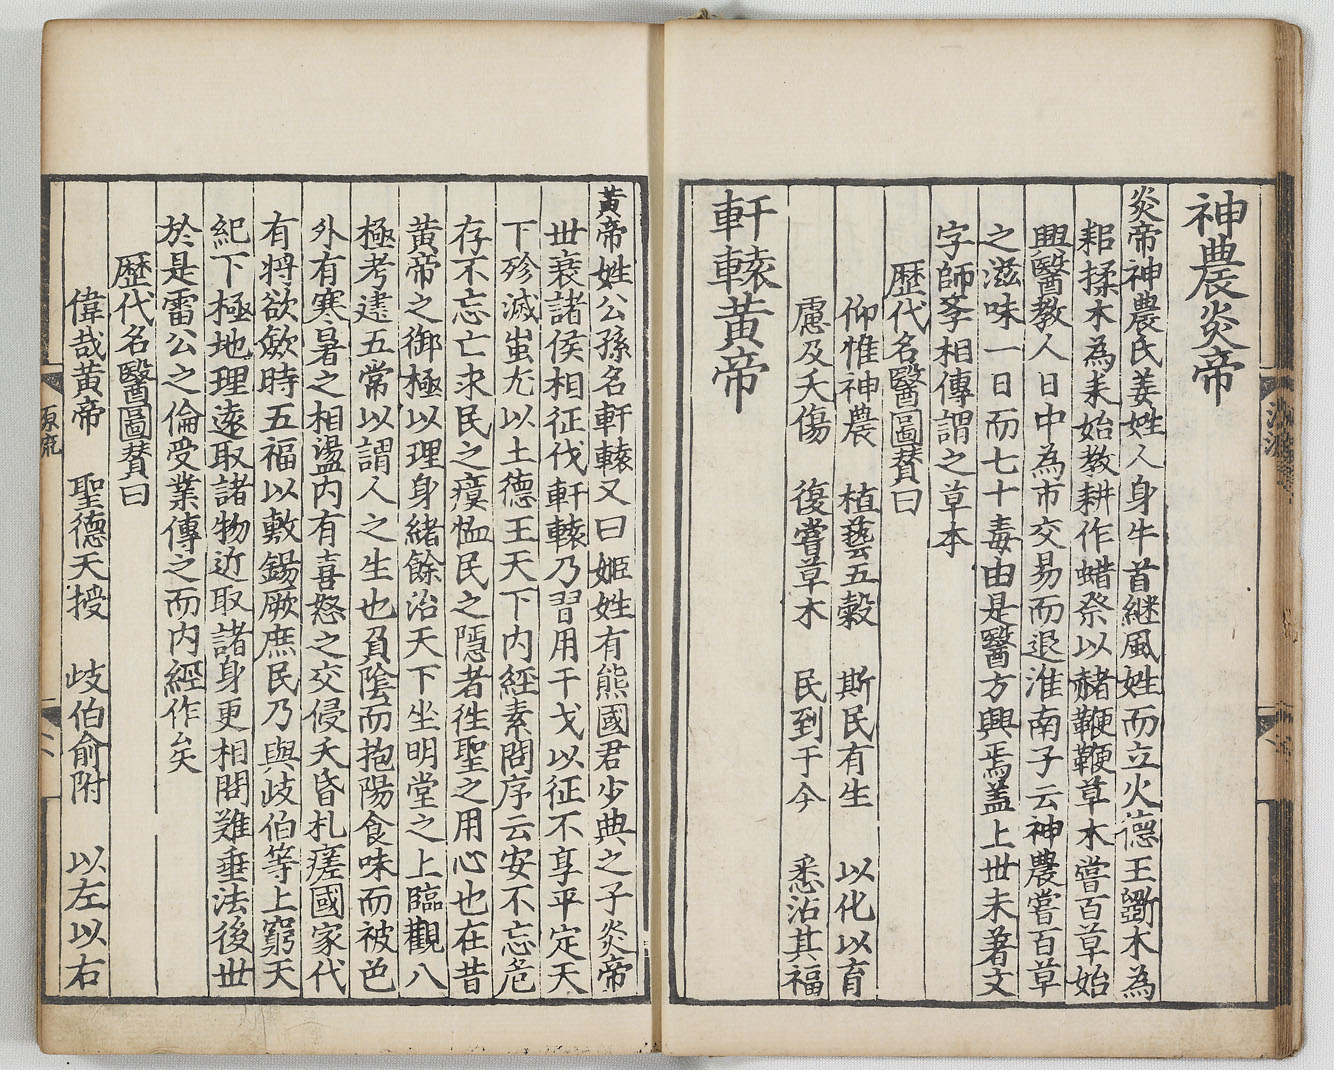 神農炎帝
炎帝神農氏姜姓人身牛首継風姓而立火德王斵木為
耜揉木為耒始教耕作蜡祭以赭鞭鞭草木嘗百草始
興醫教人日中為市交易而退淮南子云神農嘗百草
之滋味一日而七十毒由是醫方興焉盖上世未著文
字師筝相傳謂之草本
歷代名醫圖賛曰
仰惟神農 植藝五穀 斯民有生 以化以育
慮及夭傷 復嘗草木 民到于今 悉沾其福
軒轅黃帝
黃帝姓公孫名軒轅又曰姬姓有熊國君少典之子炎帝
世衰諸侯相征伐軒轅乃習用干戈以征不享平定天
下殄滅蚩尤以土德王天下内經素問序云安不忘危
存不忘亡求民之瘼恤民之隱者徃聖之用心也在昔
黃帝之御極以理身緒餘治天下坐明堂之上臨觀八
極考建五常以謂人之生也負陰而抱陽食味而被色
外有寒暑之相盪内有喜怒之交侵夭昏札瘥國家代
有将欲斂時五福以敷錫厥庶民乃與歧伯等上窮天
紀下極地理逺取諸物近取諸身更相問難垂法後世
於是雷公之倫受業傳之而内經作矣
歷代名醫圖賛曰
偉哉黃帝 聖德天授 歧伯俞附 以左以右